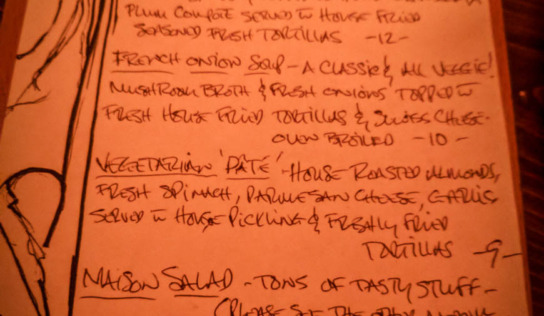 PLUM COMPOTE SERVED W HOUSE FRIED
SEASONED FRESH TORTILLAS -12-
FRENCH ONION SOUP - A CLASSIC & ALL VEGGIE!
MUSHROOM BROTH & FRESH ONIONS TOPPED W
FRESH HOUSE FRIED TORTILLAS & SWISS CHEESE-
OVEN BROILED -10-
VEGETARIAN 'PÂTE' - HOUSE ROASTED ALMONDS,
FRESH SPINACH, PARMESAN CHEESE, GARLIC
SERVED W HOUSE PICKLING & FRESHLY FRIED
TORTILLAS -9-
MAISON SALAD - TONS OF TASTY STUFF -
(PLEASE SEE THE